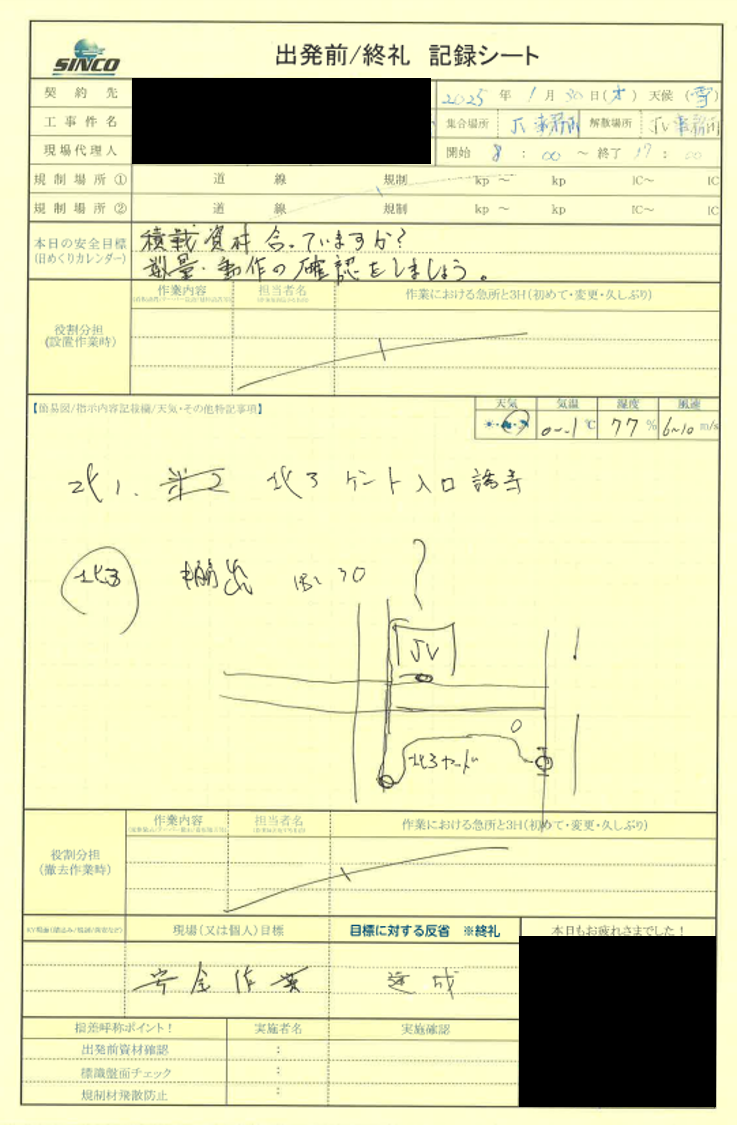 SINCO
出発前/終礼 記録シート
契約先
2025 年 1 月 30 日(木) 天候 (雪)
工事件名
集合場所 JV事務所 解散場所 JV事務所
現場代理人
開始 8 : 00 ～ 終了 17 : 00
規制場所① 道 線 規制 kp ～ kp IC～ IC
規制場所② 道 線 規制 kp ～ kp IC～ IC
本日の安全目標
(日めくりカレンダー)
積載資材合っていますか?
数量・動作の確認をしましょう。
役割分担
(設置作業時)
作業内容 担当者名 作業における急所と3H(初めて・変更・久しぶり)
【簡易図/指示内容記載欄/天気・その他特記事項】
天気 気温 湿度 風速
0~-1 ℃ 77 % 6~10 m/s
北1. 北3 ゲント入口誘導
北3 搬出
JV
北3ヤード
役割分担
(撤去作業時)
作業内容 担当者名 作業における急所と3H(初めて・変更・久しぶり)
現場(又は個人)目標 目標に対する反省 ※終礼 本日もお疲れさまでした!
安全作業 達成
指差呼称ポイント! 実施者名 実施確認
出発前資材確認 :
標識盤面チェック :
規制材飛散防止 :